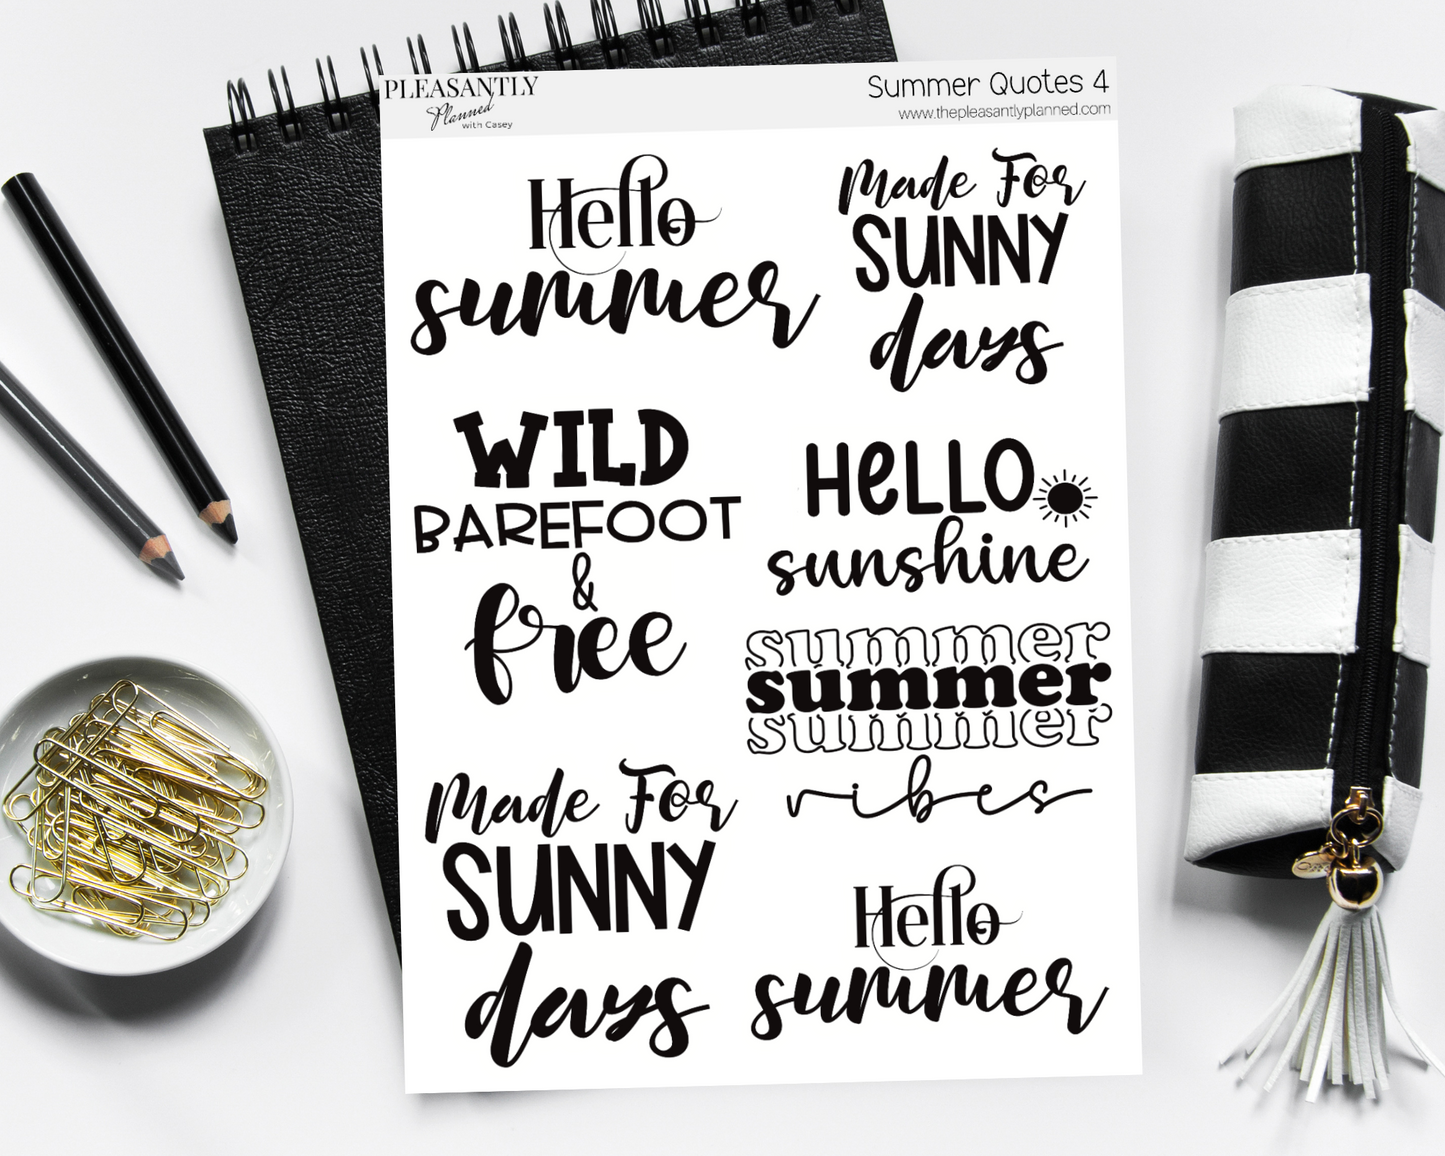 PLEASANTLY
Planned
with Casey
Summer Quotes 4
www.thepleasantlyplanned.com
Hello
summer
Made For
SUNNY
days
WILD
BAREFOOT
&
free
HeLLO
sunshine
summer
summer
summer
vibes
Made For
SUNNY
days
Hello
summer